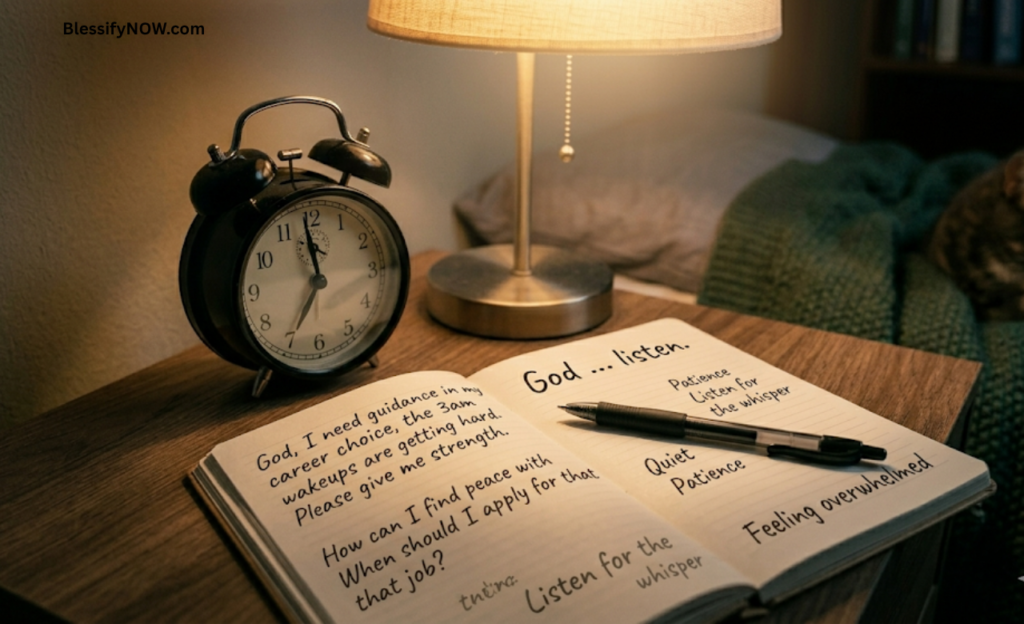 BlessifyNOW.com
12
1
2
3
4
5
6
7
8
9
10
11
God, I need guidance in my
career choice, the 3am
wakeups are getting hard.
Please give me strength.
How can I find peace with
When should I apply for that
that job?
Listen for the
whisper
God ... listen.
Patience
Listen for
the whisper
Quiet
Patience
Feeling overwhelmed